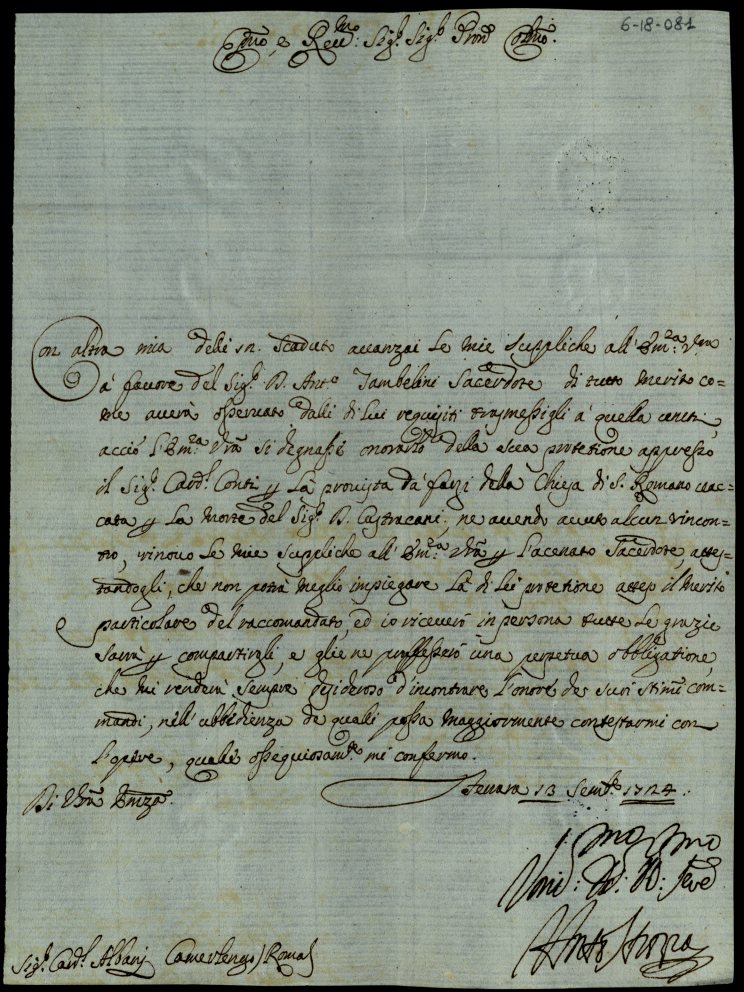 6-18-081
Emo, e Reumo: Sigr. Sigr. Pron Colmo.
Con altra mia delli 12. scaduto auanzai le mie suppliche all' Emza: Vra
a' fauore del Sigr. D. Anto Tambelini Sacerdote di tutto merito co=
me auerà osseruato dalli di lui requisiti trasmessigli a' quella
acciò l'Emza: Vra si degnasse onorarlo della sua protetione appresso
il Sigr. Cardl. Conti p la prouista da farsi della Chiesa di S. Romano uac=
cata p la morte del Sigr. D. Castracani, ne auendo auuto alcun rincon=
tro, rinouo le mie suppliche all' Emza: Vra p l'acenato Sacerdote, attes=
tandogli, che non potrà meglio impiegare la di lei protetione atteso il merito
particolare del raccomandato, ed io riceuerò in persona tutte le grazie
sarà p compartirgli, e gliene professerò una perpetua obbligatione,
che mi renderà sempre desideroso d'incontrare l'onore de suoi stimi com=
mandi, nell' ubbidienza de quali possa maggiormente contestarmi con
l'opere, quale ossequiosamte mi confermo.
Di Vra Emza.
Ferrara 13 Sembre 1724.
Vmo: Do: D: Sere
Sigr. Cardl. Albani Camerlengo / Roma /